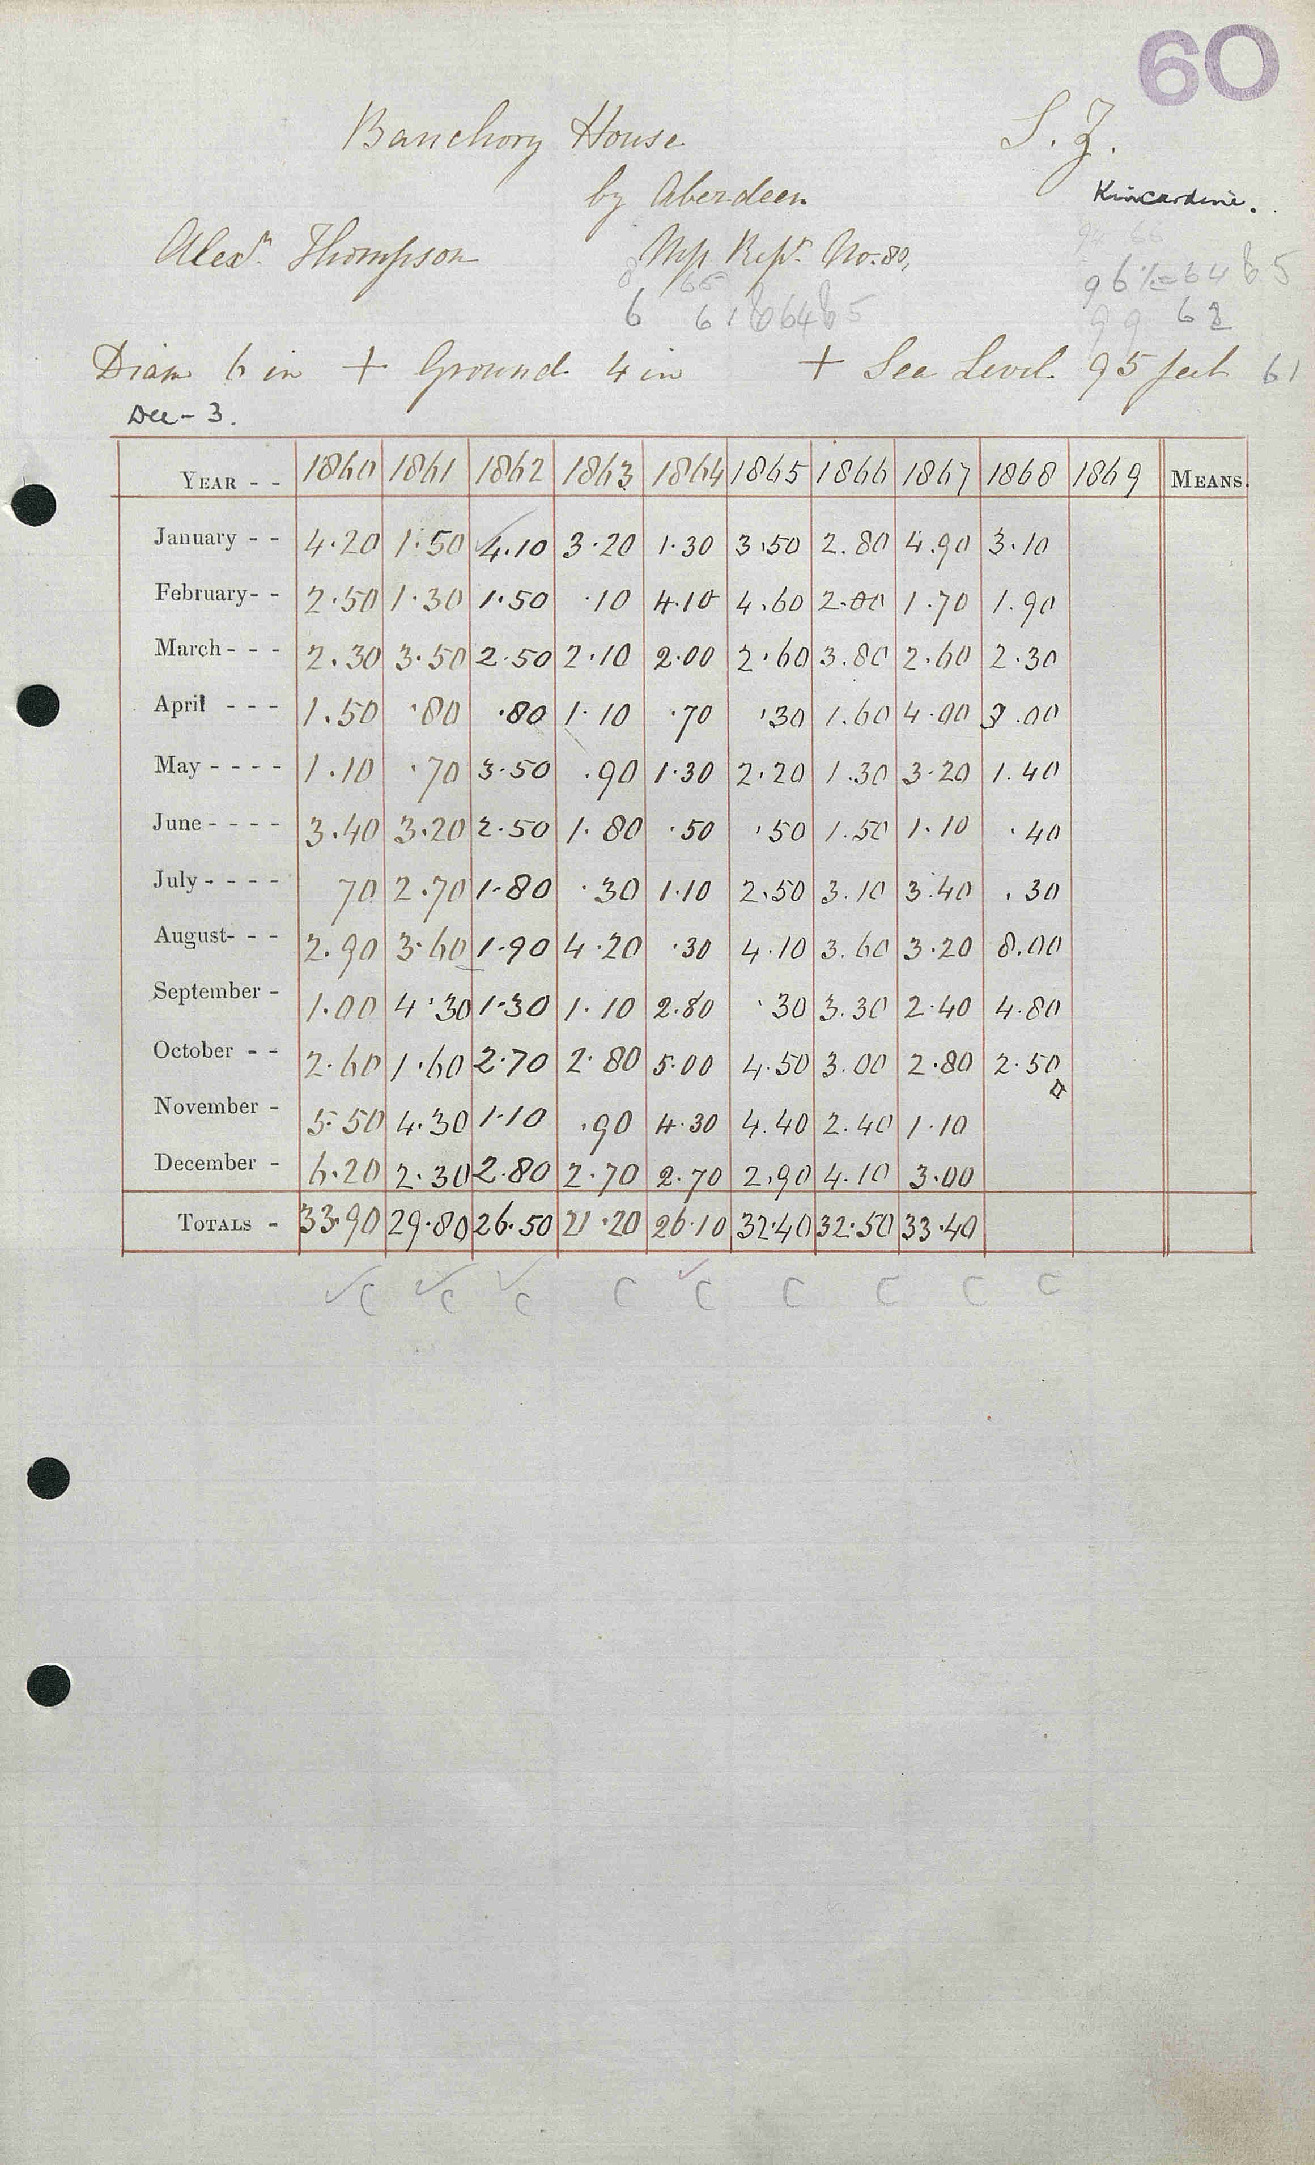 60
Banchory House S. Z.
by Aberdeen Kincardine.
94 66
Alexr. Thompson No. 80,
65 96 64 65
6 61 64 65 99 62
Diam 6 in + Ground 4 in + Sea Level 95 feet 61
Dee - 3.
YEAR - - 1860 1861 1862 1863 1864 1865 1866 1867 1868 1869 MEANS.
January - - 4.20 1.50 4.10 3.20 1.30 3.50 2.80 4.90 3.10
February - - 2.50 1.30 1.50 .10 4.10 4.60 2.00 1.70 1.90
March - - - 2.30 3.50 2.50 2.10 2.00 2.60 3.80 2.60 2.30
April - - - 1.50 .80 .80 1.10 .70 .30 1.60 4.00 3.00
May - - - - 1.10 .70 3.50 .90 1.30 2.20 1.30 3.20 1.40
June - - - - 3.40 3.20 2.50 1.80 .50 .50 1.50 1.10 .40
July - - - - 70 2.70 1.80 .30 1.10 2.50 3.10 3.40 .30
August - - - 2.90 3.60 1.90 4.20 .30 4.10 3.60 3.20 8.00
September - 1.00 4.30 1.30 1.10 2.80 .30 3.30 2.40 4.80
October - - 2.60 1.60 2.70 2.80 5.00 4.50 3.00 2.80 2.50
November - 5.50 4.30 1.10 .90 4.30 4.40 2.40 1.10
December - 6.20 2.30 2.80 2.70 2.70 2.90 4.10 3.00
TOTALS - 33.90 29.80 26.50 21.20 26.10 32.40 32.50 33.40
C C C C C C C C C